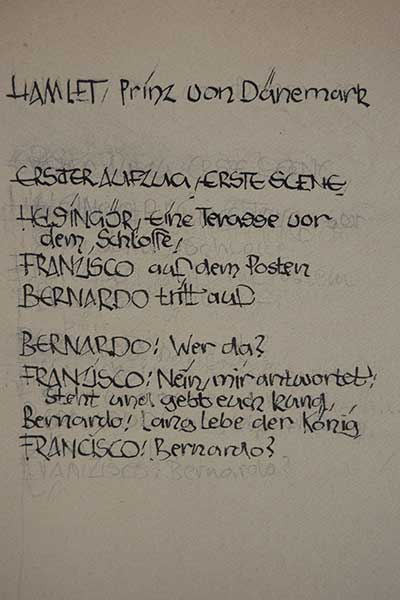 HAMLET, Prinz von Dänemark
ERSTER AUFZUG, ERSTE SCENE
HELSINGÖR, Eine Terasse vor
dem Schlosse,
FRANZISCO auf dem Posten
BERNARDO tritt auf
BERNARDO: Wer da?
FRANZISCO: Nein, mir antwortet!
steht und gebt euch kund,
Bernardo: Lang Lebe der König
FRANCISCO: Bernardo?